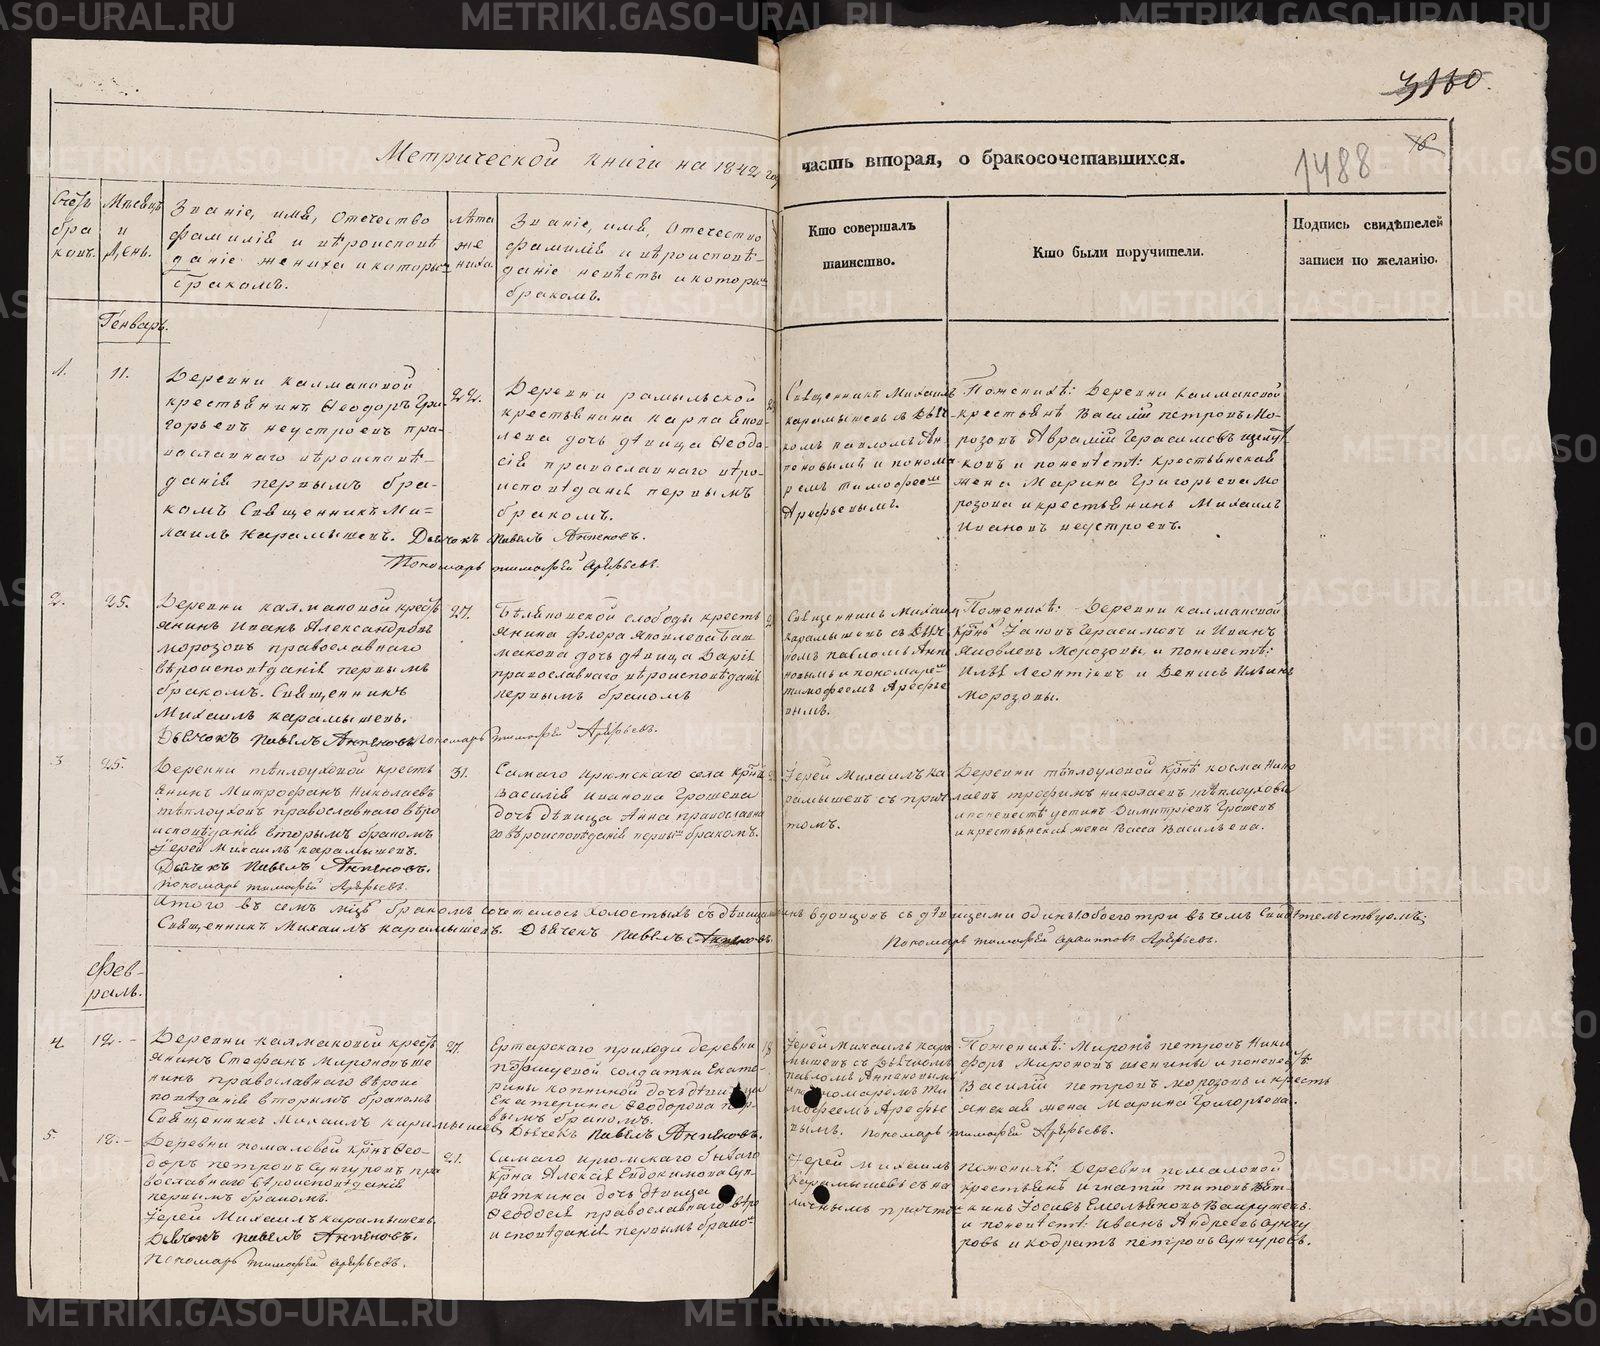 3160.
Метрической книги на 1842 год
часть вторая, о бракосочетавшихся.
1488
Счетъ браковъ.
Мѣсяцъ и День.
Званіе, имя, Отечество
фамилія и вѣроисповѣ-
даніе жениха и которымъ
бракомъ.
лѣта
же
ниха.
Званіе, имя, Отечество
фамилія и вѣроисповѣ-
даніе невѣсты и которымъ
бракомъ.
Кто совершалъ
таинство.
Кто были поручители.
Подпись свидѣтелей
записи по желанію.
Генварь.
1.
11.
Деревни калмаковой
крестьянинъ Ѳеодоръ Гри-
горьевъ неустроевъ пра-
вославнаго вѣроисповѣ-
данія первымъ бра-
комъ Священникъ Ми-
хаилъ Карамышевъ. Дьячокъ Павелъ
Пономарь тимофей Арефьевъ.
22.
Деревни рамыльской
крестьянина карпа
дочь дѣвица Ѳеодо-
сія православнаго вѣро-
исповѣданія первымъ
бракомъ.
Священникъ Михаилъ
карамышевъ съ Дьяч-
комъ павломъ
и понома-
ремъ тимофеемъ
Арефьевымъ.
Поженихѣ: Деревни калмаковой
крестьянѣ Василій петровъ Мо-
розовъ Аврамій Герасимовъ
и поневѣстѣ: крестьянская
жена Марина Григорьева Мо
розова и крестьянинъ Михаилъ
Ивановъ неустроевъ.
2.
25.
Деревни калмаковой кресть
янинъ Иванъ Александровъ
морозовъ православнаго
вѣроисповѣданія первымъ
бракомъ. Священникъ
Михаилъ карамышевъ.
Дьячокъ Павелъ пономарь тимофей Арефьевъ.
27.
Бѣляковской слободы кресть
янина флора Яковлева Баш
макова дочь дѣвица Дарія
православнаго вѣроисповѣданія
первымъ бракомъ
Священникъ Михаилъ
карамышевъ съ Дьяч
комъ павломъ
и пономаремъ
тимофеемъ Арефье
вымъ.
Поженихѣ: Деревни калмаковой
Герасимовъ и Иванъ
Яковлевъ Морозовы, и поневѣстѣ:
Илья Леонтіевъ и Денисъ Ильинъ
Морозовы.
3
25.
Деревни тѣплоуховой кресть
янинъ Митрофанъ Николаевъ
тѣплоуховъ православнаго вѣро
исповѣданія вторымъ бракомъ
Іерей Михаилъ карамышевъ.
Дьячекъ Павелъ
пономарь тимофей Арефьевъ.
31.
Самаго крюмскаго села
Василія Иванова Грошева
дочь дѣвица Анна православна
го вѣроисповѣданія первымъ бракомъ.
Іерей Михаилъ ка
рамышевъ съ прич
томъ.
Деревни тѣплоуховой косма Нико
лаевъ трофимъ николаевъ тѣплоуховы
и поневестѣ устинъ Димитріевъ Грошевъ
и крестьянская жена Васса Васильева.
Итого въ семъ мцѣ бракомъ сочеталось холостыхъ съ дѣвицами вдовцовъ съ дѣвицами одинъ обоего три въ чемъ Свидѣтельствуемъ:
Священникъ Михаилъ карамышевъ. Дьячекъ Павелъ
Пономарь тимофей Арефьевъ.
Фев-
раль.
4.
12.
Деревни калмаковой кресть
янинъ Стефанъ Мироновъ ше
нинъ православнаго вѣроис
повѣданія вторымъ бракомъ
Священникъ Михаилъ карамышевъ Дьячекъ Павелъ
27.
Ертарскаго прихода деревни
солдатки Екате-
рины копниной дочь дѣвица
Екатерина Ѳеодорова пер-
вымъ бракомъ.
18
Іерей Михаилъ Кара
мышевъ съ Дьячкомъ
павломъ
и пономаремъ Ти
мофеемъ Арефье
вымъ. Пономарь тимофей Арефьевъ.
Поженихѣ: Миронъ петровъ Ники
форъ Мироновъ шенины и поневестѣ
Василій петровъ морозовъ и кресть
янская жена Марина Григорьева.
5.
18.
Деревни помаловой Ѳео-
доръ петровъ Сунгуровъ пра
вославнаго вѣроисповѣданія
первымъ бракомъ.
Іерей Михаилъ карамышевъ
Дьячокъ Павелъ
Пономарь тимофей Арефьевъ.
21.
Самаго крюмскаго
Алексія Евдокимова
дочь дѣвица
Ѳеодосія православнаго вѣро
исповѣданія первымъ бракомъ
Іерей Михаилъ
Карамышевъ съ на
личнымъ притчомъ
Поженихѣ: Деревни помаловой
крестьянѣ Игнатій титовъ
Іосифъ Емельяновъ
и поневестѣ: Иванъ Андреевъ Сунгу
ровъ и Кодратъ петровъ Сунгуровъ.
METRIKI.GASO-URAL.RU